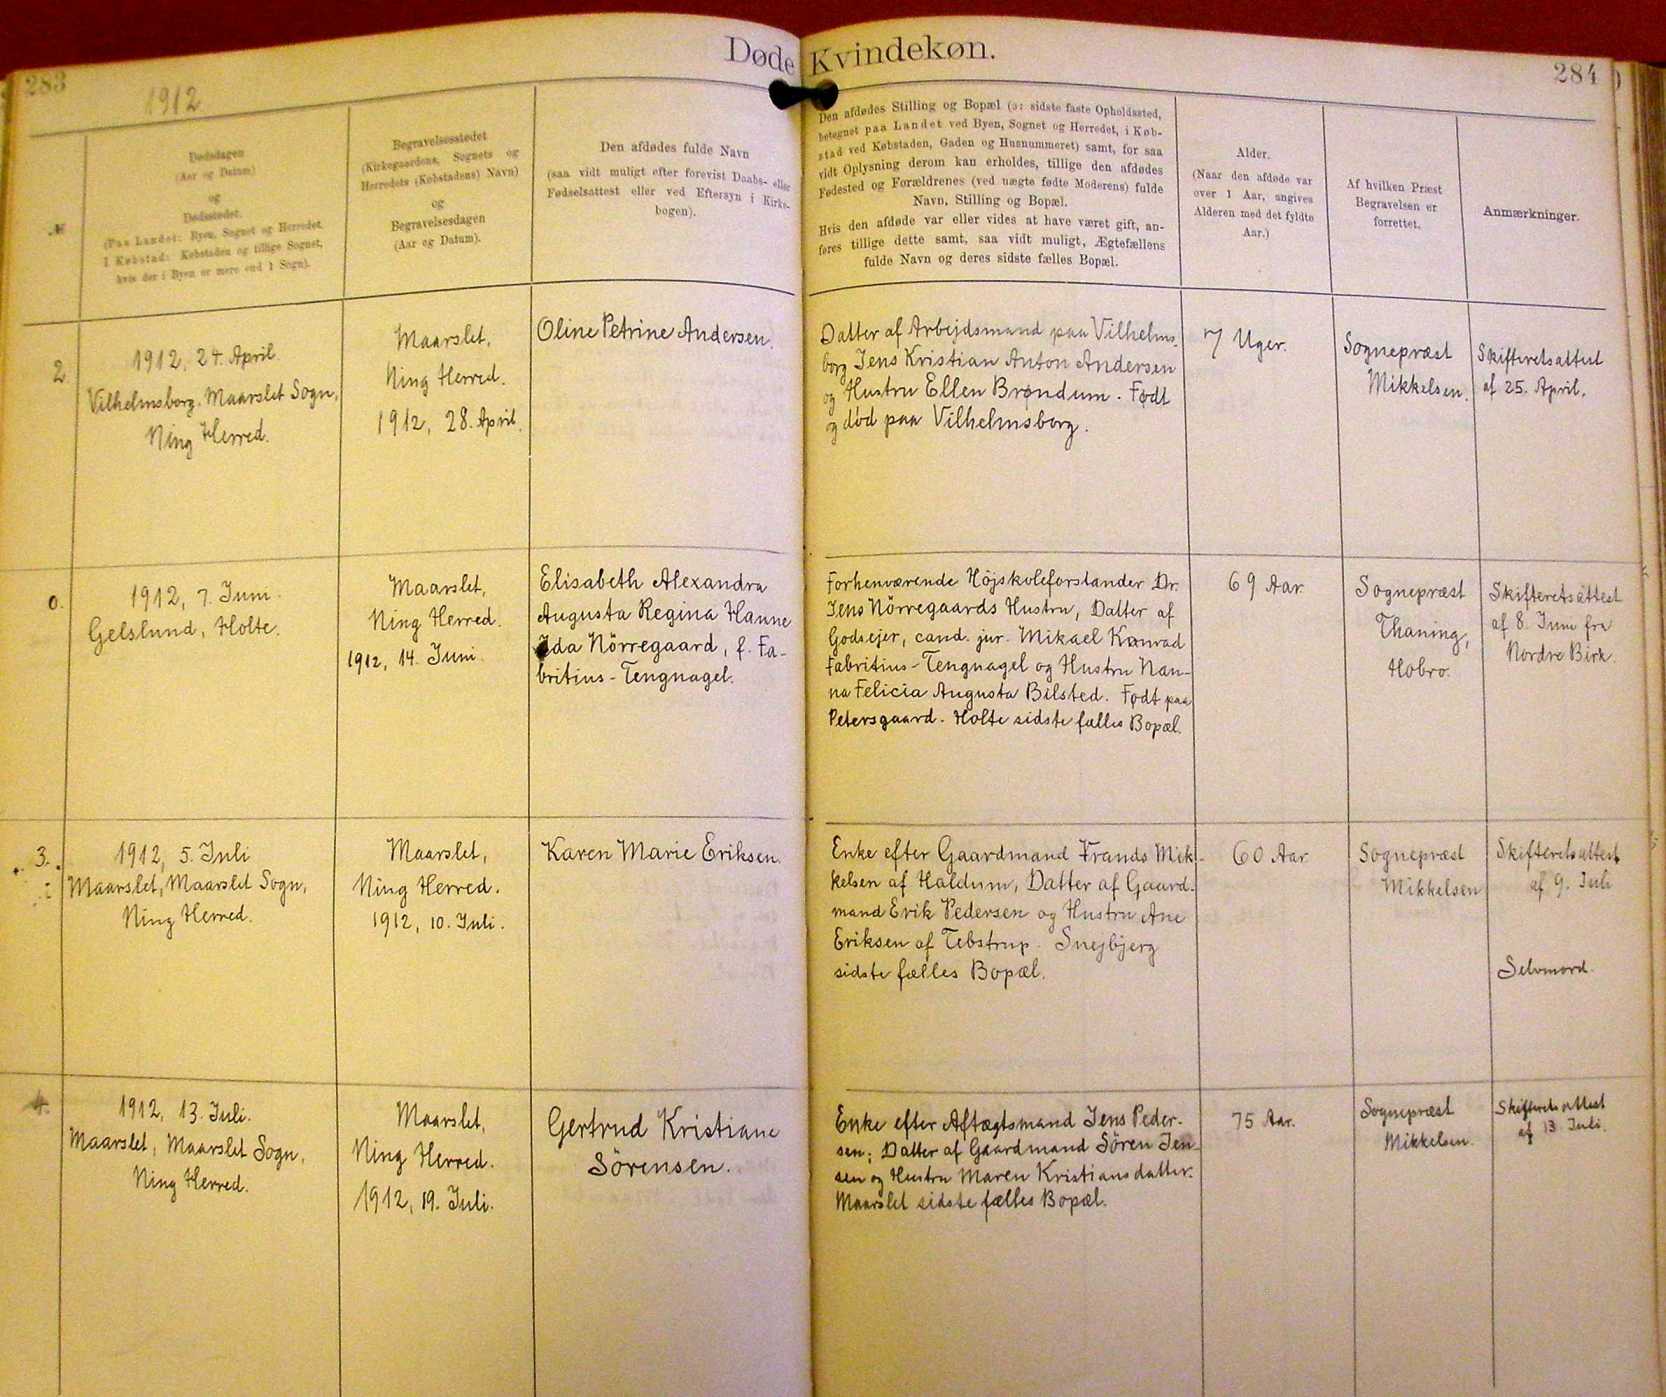 283
Døde Kvindekøn.
284
1912
№
Dødsdagen
(Aar og Datum)
og
Dødsstedet.
(Paa Landet: Byen, Sognet og Herredet,
I Købstad: Købstaden og tillige Sognet,
hvis der i Byen er mere end 1 Sogn).
Begravelsesstedet
(Kirkegaardens, Sognets og
Herredets (Købstadens) Navn)
og
Begravelsesdagen
(Aar og Datum).
Den afdødes fulde Navn
(saa vidt muligt efter forevist Daabs- eller
Fødselsattest eller ved Eftersyn i Kirke-
bogen).
Den afdødes Stilling og Bopæl (ɔ: sidste faste Opholdssted,
betegnet paa Landet ved Byen, Sognet og Herredet, i Køb-
stad ved Købstaden, Gaden og Husnummeret) samt, for saa
vidt Oplysning derom kan erholdes, tillige den afdødes
Fødested og Forældrenes (ved uægte fødte Moderens) fulde
Navn, Stilling og Bopæl.
Hvis den afdøde var eller vides at have været gift, an-
føres tillige dette samt, saa vidt muligt, Ægtefællens
fulde Navn og deres sidste fælles Bopæl.
Alder.
(Naar den afdøde var
over 1 Aar, angives
Alderen med det fyldte
Aar.)
Af hvilken Præst
Begravelsen er
forrettet.
Anmærkninger.
2
1912, 24. April.
Vilhelmsborg. Maarslet Sogn,
Ning Herred.
Maarslet,
Ning Herred.
1912, 28. April.
Oline Petrine Andersen.
Datter af Arbejdsmand paa Vilhelms-
borg Jens Kristian Anton Andersen
og Hustru Ellen Brøndum. Født
og død paa Vilhelmsborg.
7 Uger.
Sognepræst
Mikkelsen.
Skifteretsattest
af 25. April.
0.
1912, 7. Juni.
Gelslund, Holte.
Maarslet,
Ning Herred.
1912, 14. Juni.
Elisabeth Alexandra
Augusta Regina Hanne
Ida Nörregaard, f. Fa-
britius-Tengnagel.
Forhenværende Höjskoleforstander Dr.
Jens Nörregaards Hustru, Datter af
Godsejer, cand. jur. Mikael Konrad
Fabritius-Tengnagel og Hustru Nan-
na Felicia Augusta Bilsted. Født paa
Petersgaard. Holte sidste fælles Bopæl.
69 Aar.
Sognepræst
Thaning,
Hobro.
Skifteretsattest
af 8. Juni fra
Nordre Birk.
3.
1912, 5. Juli
Maarslet, Maarslet Sogn,
Ning Herred.
Maarslet,
Ning Herred.
1912, 10. Juli.
Karen Marie Eriksen.
Enke efter Gaardmand Frands Mik-
kelsen af Haldum, Datter af Gaard-
mand Erik Pedersen og Hustru Ane
Eriksen af Tebstrup. Snejbjerg
sidste fælles Bopæl.
60 Aar
Sognepræst
Mikkelsen
Skifteretsattest
af 9. Juli
Selvmord.
4.
1912, 13. Juli.
Maarslet, Maarslet Sogn,
Ning Herred.
Maarslet,
Ning Herred.
1912, 19. Juli.
Gertrud Kristiane
Sörensen.
Enke efter Aftægtsmand Jens Peder-
sen; Datter af Gaardmand Sören Jen-
sen og Hustru Maren Kristiansdatter.
Maarslet sidste fælles Bopæl.
75 Aar.
Sognepræst
Mikkelsen.
Skifteretsattest
af 13 Juli.